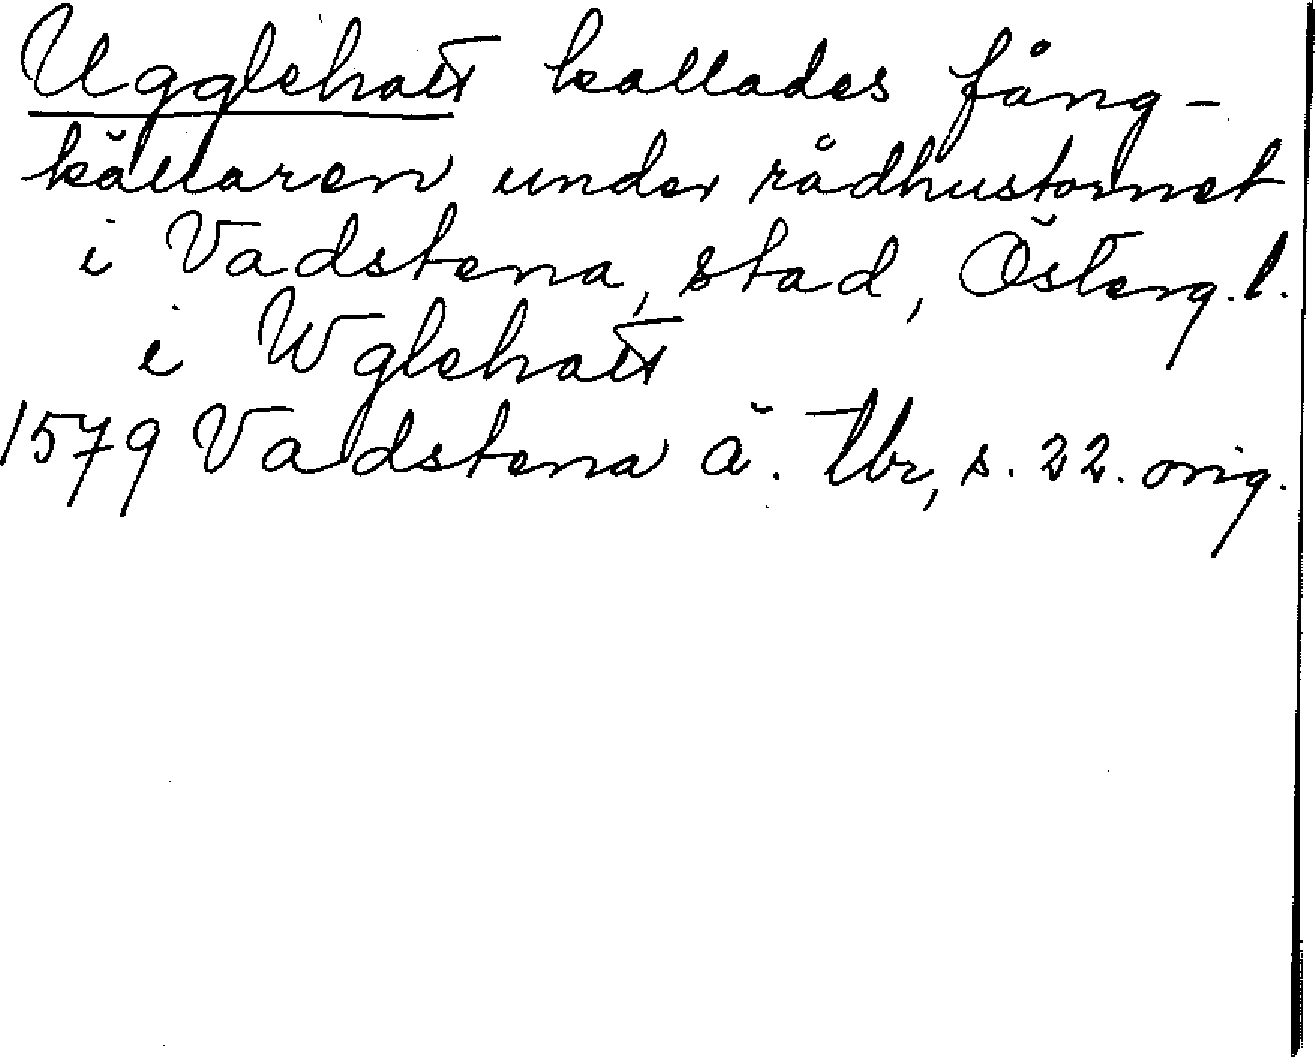 Ugglehatt kallades fång-
källaren under rådhustornet
i Vadstena, stad, Österg.l.
i Wglehatt
1579 Vadstena ä. tbr, s. 22. orig.